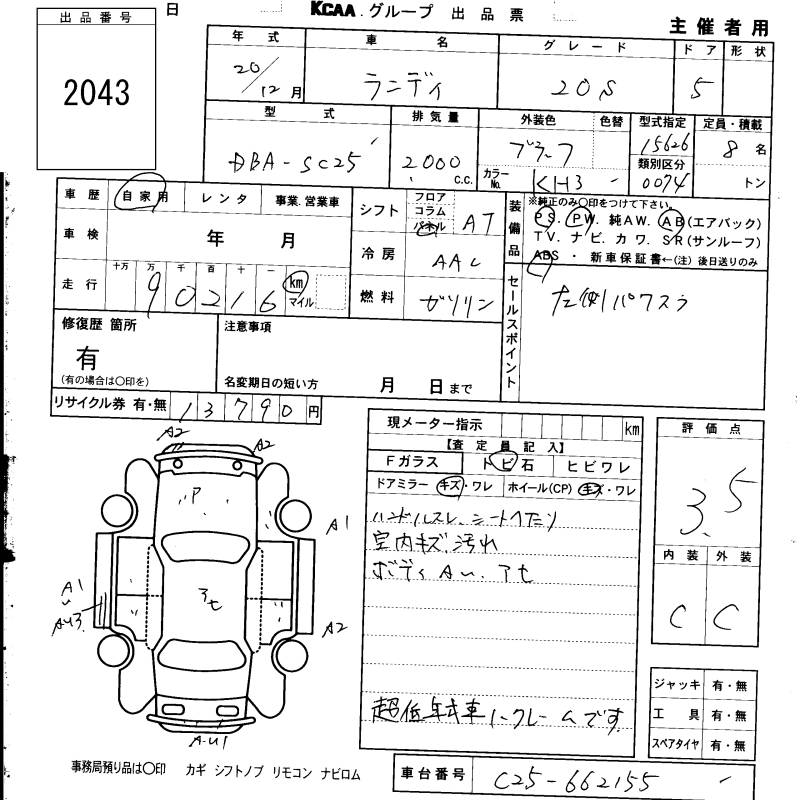 出品番号
2043
日
KCAA.グループ 出品票
主催者用
年式 車名 グレード ドア 形状
20/12月 ランディ 20S 5
型式 排気量 外装色 色替 型式指定 定員・積載
DBA-SC25 2000 c.c. ブラック 15626 8名
カラーNo. KH3 類別区分 0074 トン
車歴 自家用 レンタ 事業.営業車
シフト フロア コラム パネル AT
装備品 ※純正のみ〇印をつけて下さい。
PS. PW. 純AW. AB(エアバック)
TV. ナビ. カワ. SR(サンルーフ)
ABS ・ 新車保証書←(注)後日送りのみ
車検 年 月
冷房 AAC
走行 十万 万 千 百 十 一
90216 km マイル
燃料 ガソリン
セールスポイント
左側パワスラ
修復歴 箇所
有
(有の場合は〇印を)
注意事項
名変期日の短い方 月 日まで
リサイクル券 有・無 13790円
現メーター指示 km
【査定員記入】
Fガラス トビ石 ヒビワレ
ドアミラー キズ・ワレ ホイール(CP) キズ・ワレ
ハンドルスレ、シートヘタリ
室内キズ.汚れ
ボディAU.アセ
超低年式車ノークレームです
評価点
3.5
内装 外装
C C
A2
A2
P
A1
A1
アセ
AU3
A2
AU1
ジャッキ 有・無
工具 有・無
スペアタイヤ 有・無
事務局預り品は〇印 カギ シフトノブ リモコン ナビロム
車台番号 C25-662155